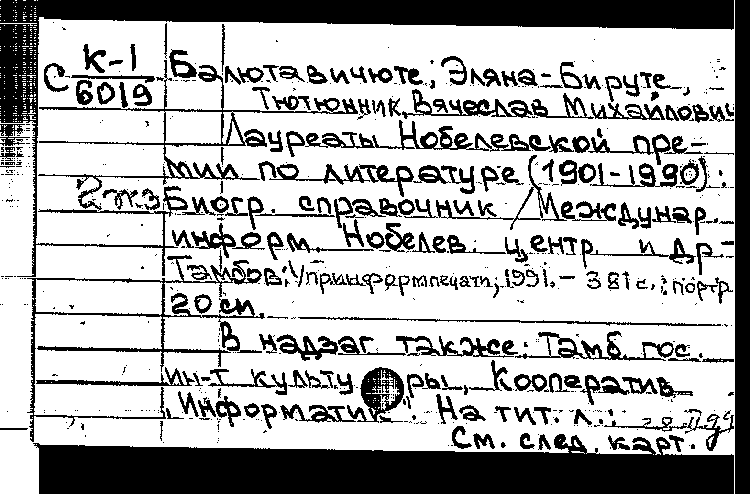 С К-1
6019
Балютавичюте, Эляна-Бируте,
Тютюнник, Вячеслав Михайлович
Лауреаты Нобелевской пре-
мии по литературе (1901-1990):
2 экз Биогр. справочник / Междунар.
информ. Нобелев. центр. и др.-
Тамбов: Упринформпечати, 1991. - 381 с.; портр.
20 см.
В надзаг. также: Тамб. гос.
ин-т культуры, Кооператив
"Информатик". На тит. л.:
См. след. карт.